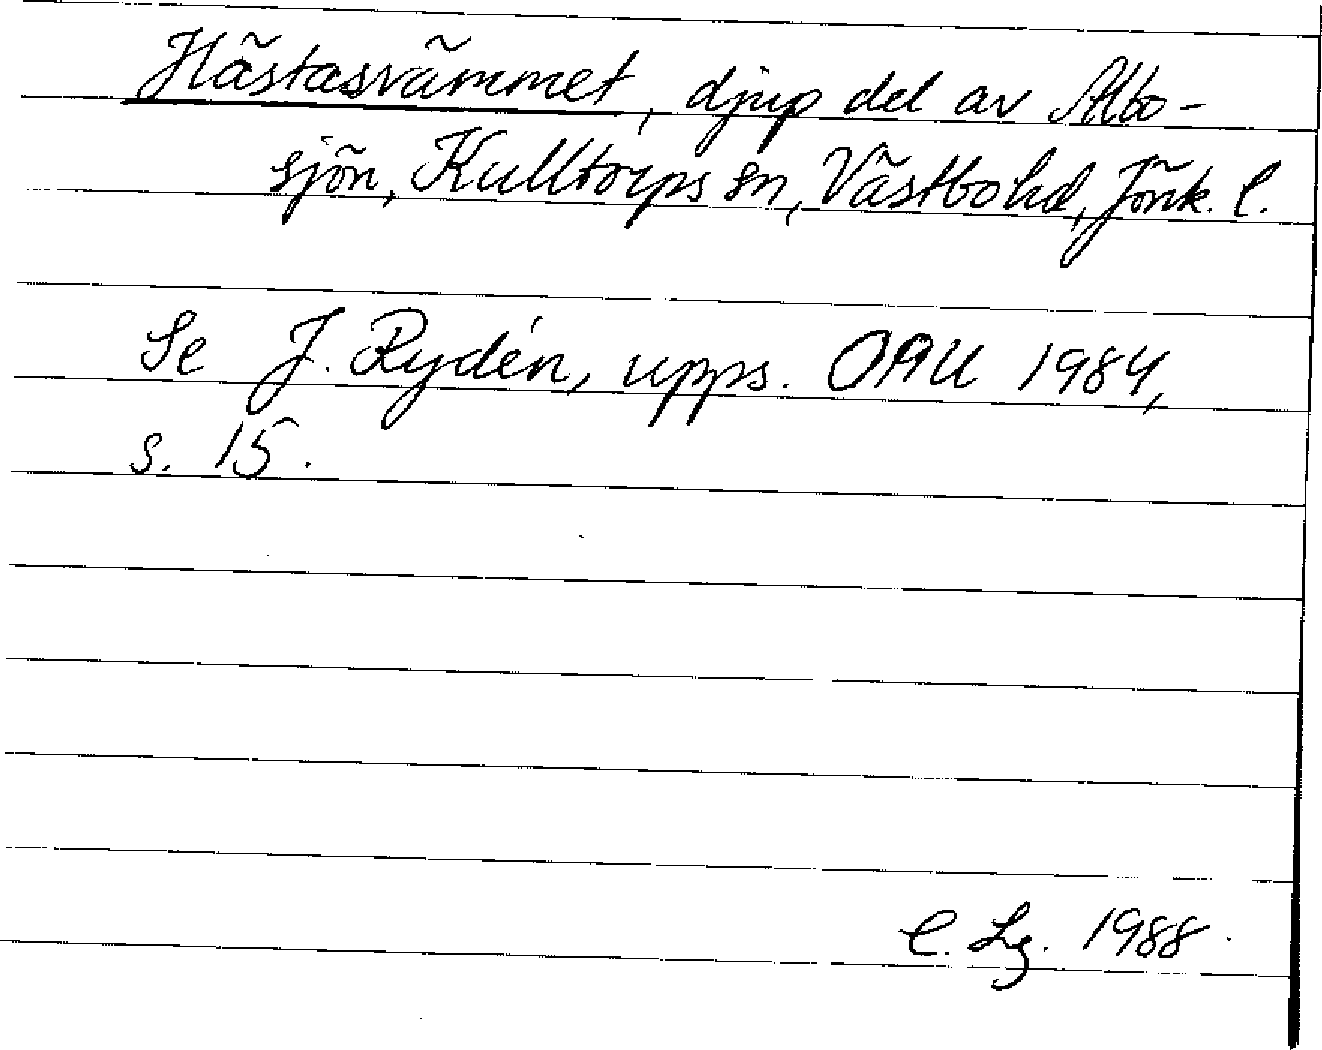 Hästasvämmet, djup del av Albo-
sjön, Kulltorps sn, Västbohd, Jönk. l.
Se J. Rydén, upps. OAU 1984,
s. 15.
C. Lg. 1988.